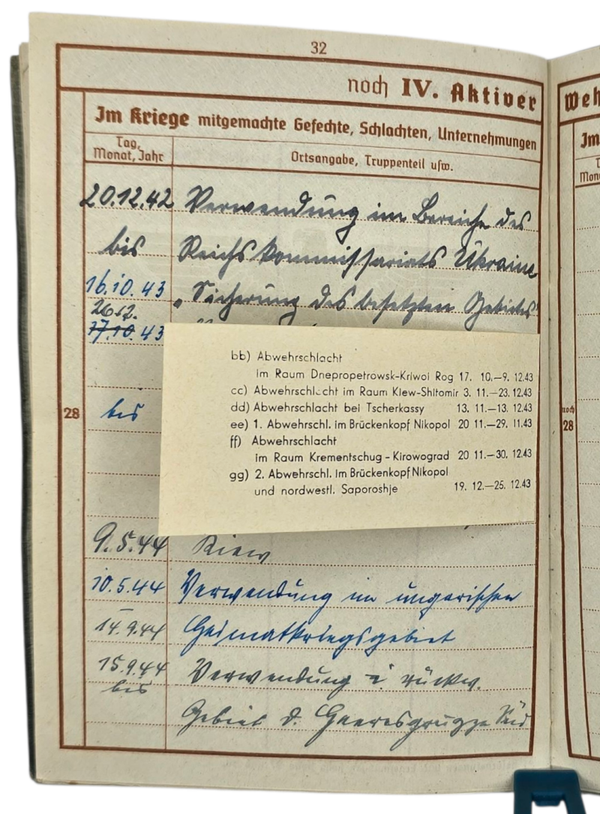 32
noch IV. Aktiver
Weh
Im Kriege mitgemachte Gefechte, Schlachten, Unternehmungen
Im
Tag, Monat, Jahr
Ortsangabe, Truppenteil usw.
20.12.42 Verwendung im Bereiche des
bis Reichskommissariats Ukraine
16.10.43 "Sicherung des besetzten Gebietes"
26.12.
17.10.43
bb) Abwehrschlacht
im Raum Dnepropetrowsk-Kriwoi Rog 17. 10.—9. 12.43
cc) Abwehrschlacht im Raum Kiew-Shitomir 3. 11.—23. 12.43
dd) Abwehrschlacht bei Tscherkassy 13. 11.—13. 12.43
ee) 1. Abwehrschl. im Brückenkopf Nikopol 20 11.—29. 11.43
ff) Abwehrschlacht
im Raum Krementschug - Kirowograd 20 11.—30. 12.43
gg) 2. Abwehrschl. im Brückenkopf Nikopol
und nordwestl. Saporoshje 19. 12.—25. 12.43
28
bis
noch
28
9.5.44 Kiew
10.5.44 Verwendung im ungarischen
–
14.9.44 Heimatkriegsgebiet
15.9.44 Verwendung i. rückw.
bis
Gebiet d. Heeresgruppe Süd